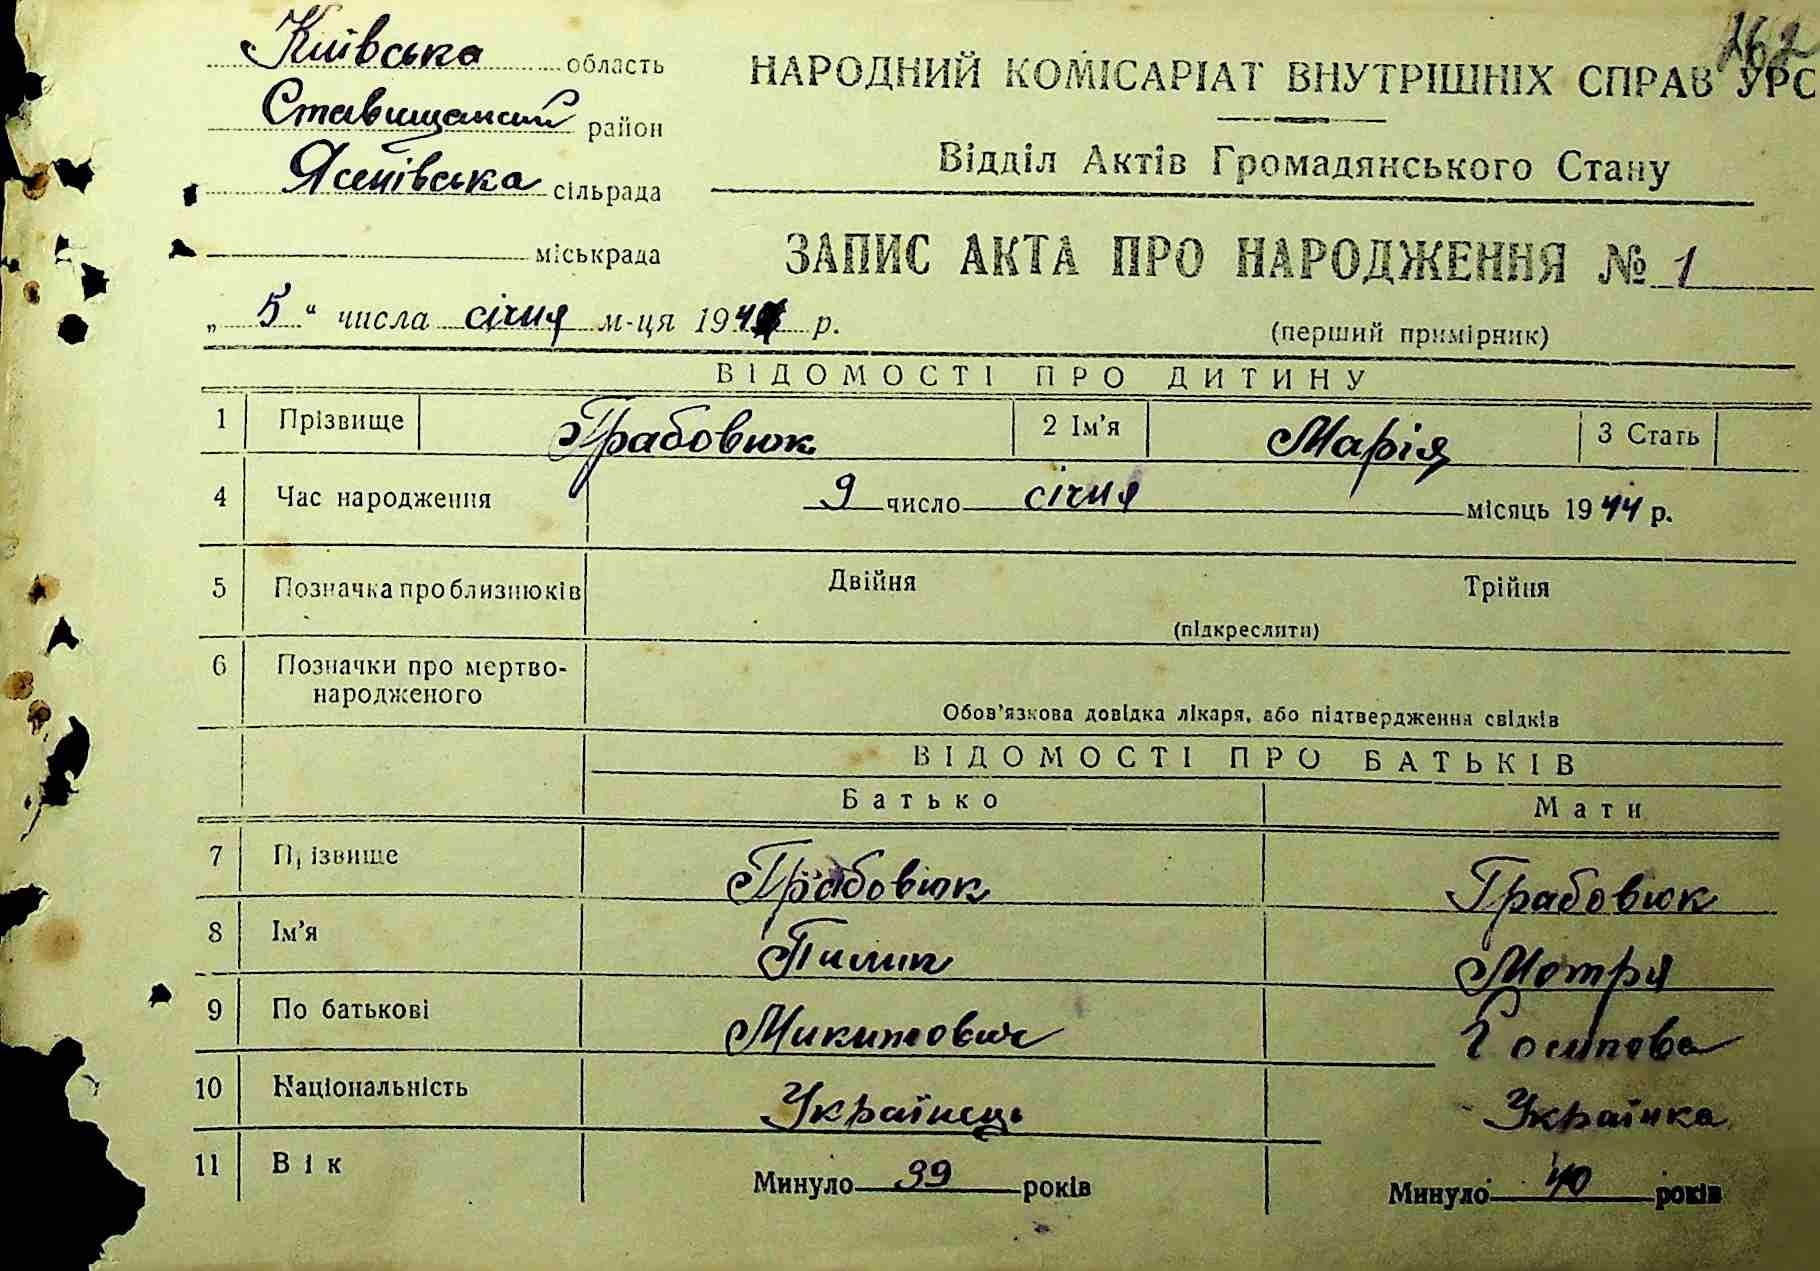 262
Київська область
НАРОДНИЙ КОМІСАРІАТ ВНУТРІШНІХ СПРАВ УРС
Ставищанський район
Відділ Актів Громадянського Стану
Ясенівська сільрада
міськрада
ЗАПИС АКТА ПРО НАРОДЖЕННЯ № 1
„ 5 " числа січня м-ця 194 р.
(перший примірник)
ВІДОМОСТІ ПРО ДИТИНУ
1 Прізвище Грабовюк 2 Ім'я Марія 3 Стать
4 Час народження 9 число січня місяць 1944 р.
5 Позначка про близнюків Двійня Трійня
(підкреслити)
6 Позначки про мертво-
народженого
Обов'язкова довідка лікаря, або підтвердження свідків
ВІДОМОСТІ ПРО БАТЬКІВ
Батько Мати
7 Прізвище Грабовюк Грабовюк
8 Ім'я Пилип Мотря
9 По батькові Микитович
10 Національність Українець Українка
11 Вік Минуло 39 років Минуло 40 років